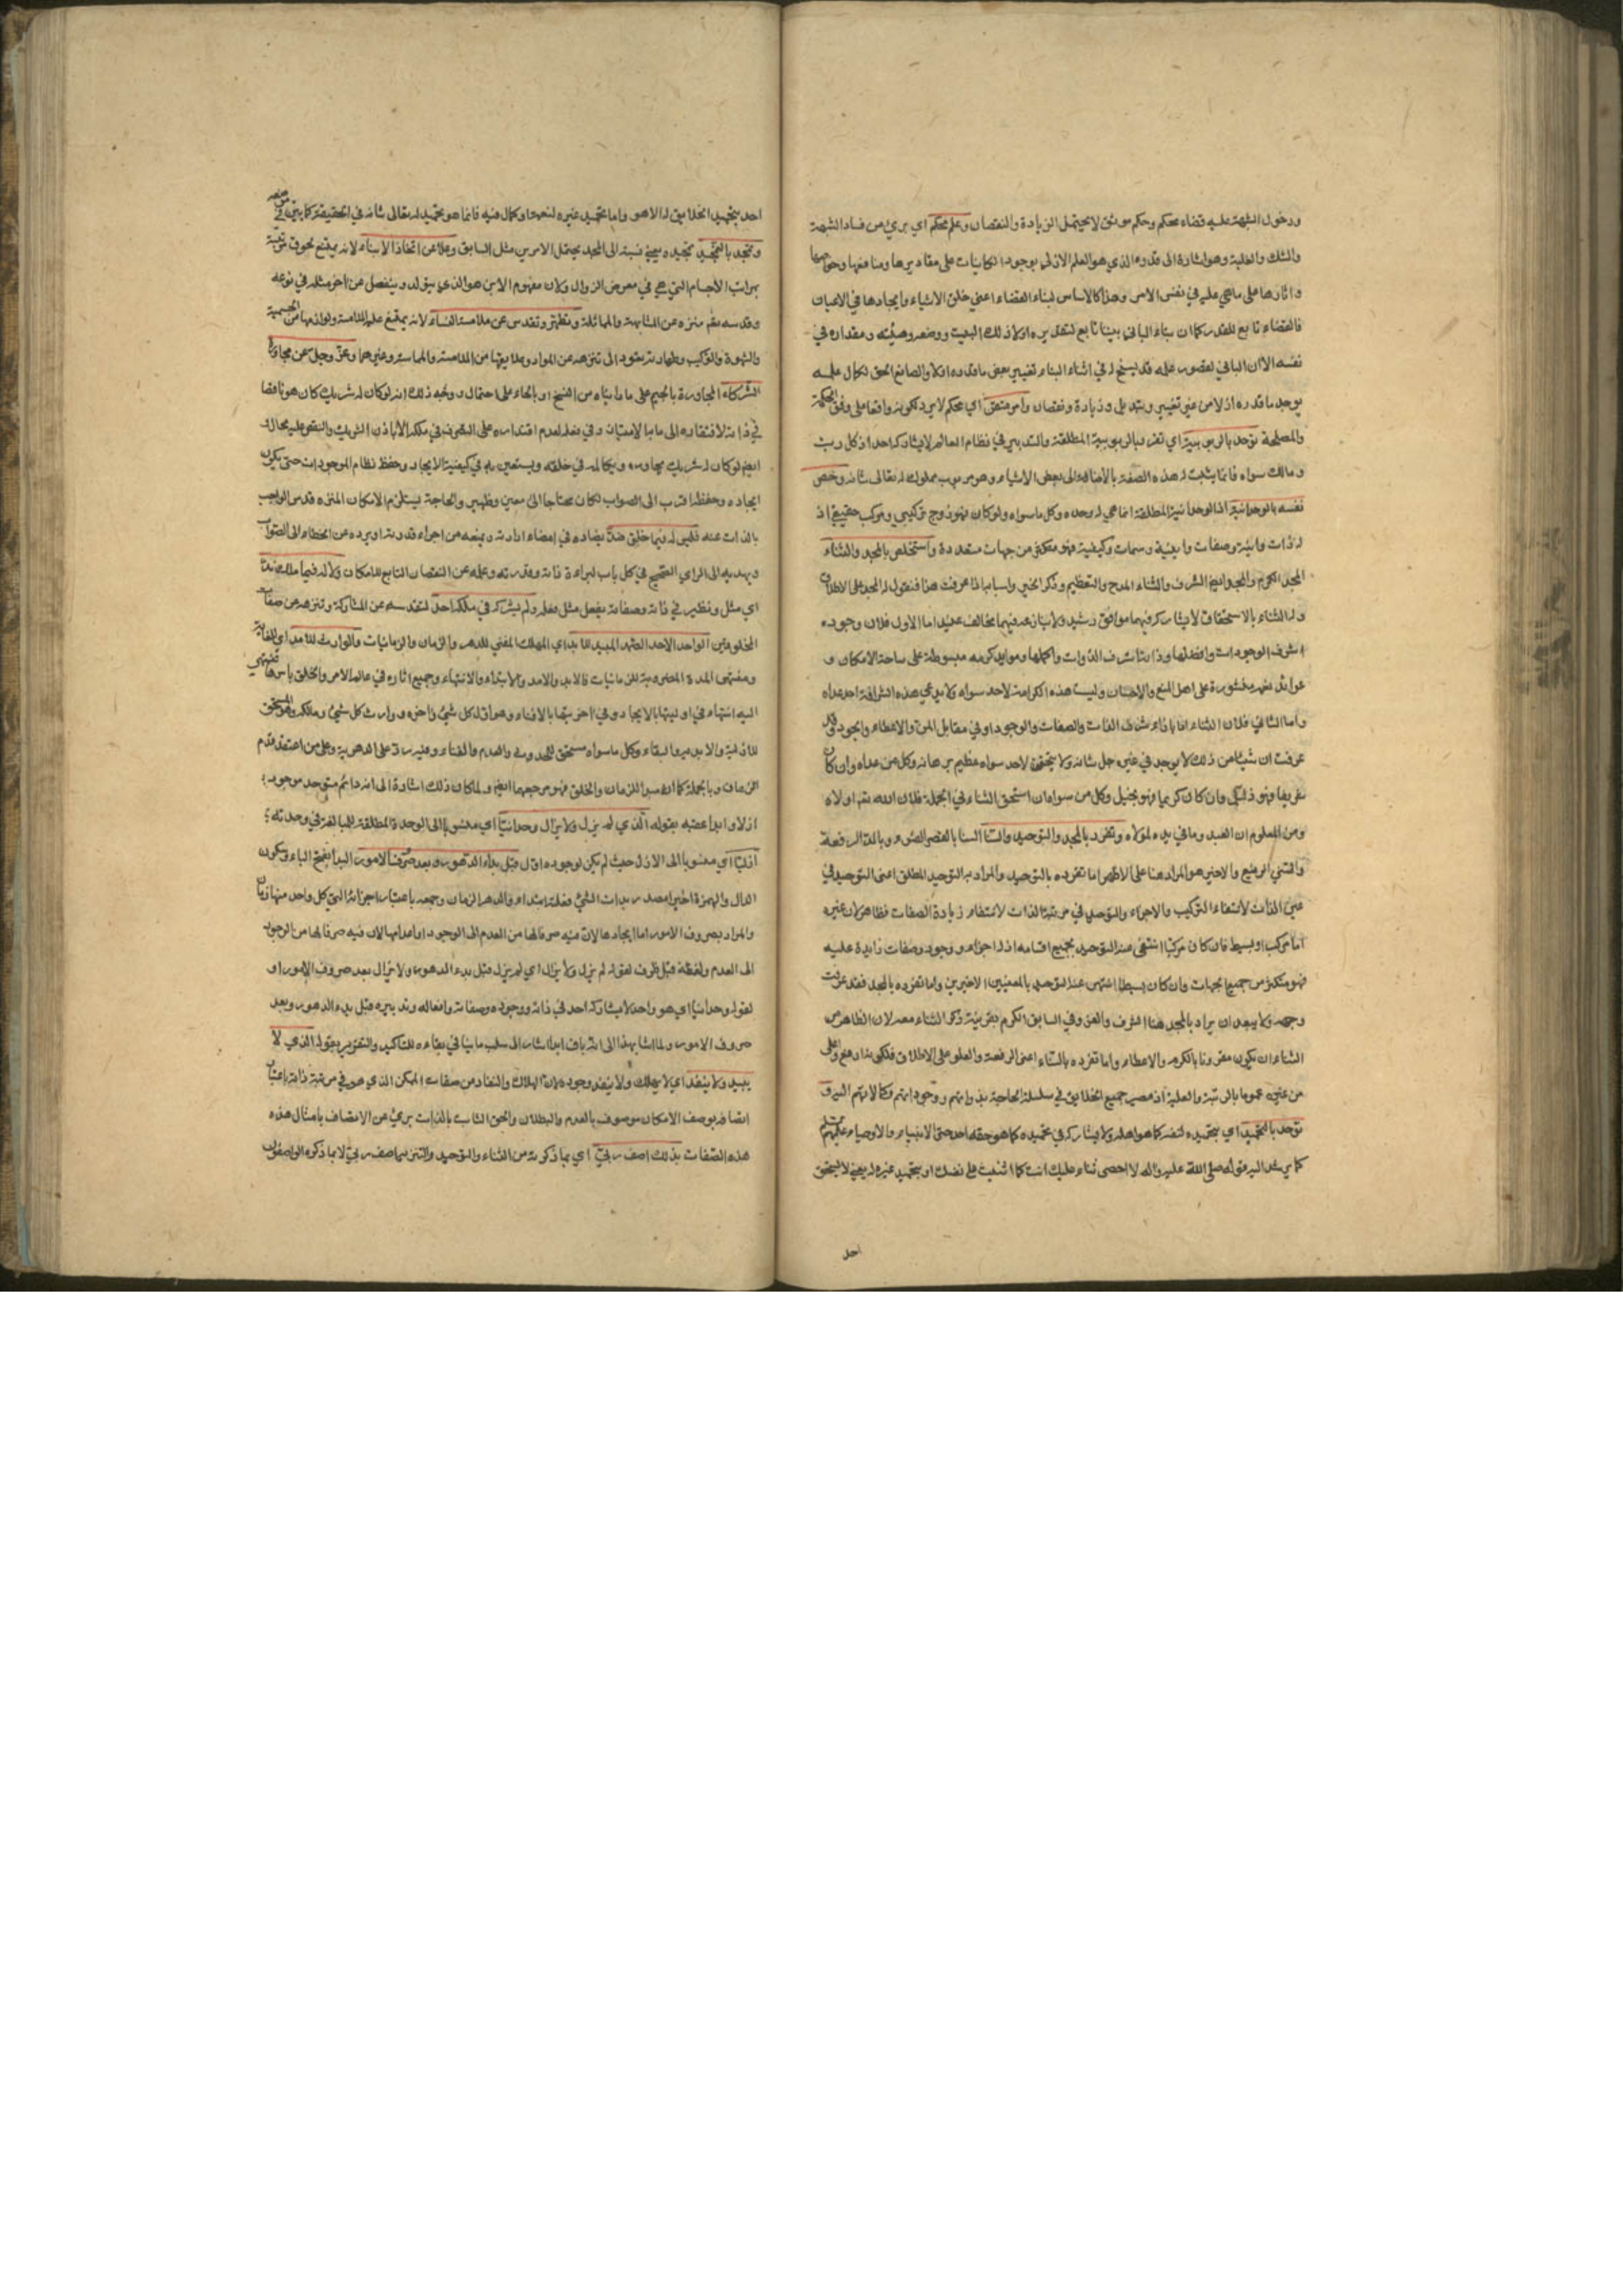 ودخول الشبهة عليه قضاء محكم وحكم موثق لا يحتمل الزيادة والنقصان وعلم محكم اي بريء من فساد الشبهة
والشك والغلبة وهو اشارة الى قدره الذي هو العلم الازلي بوجود الكاينات على مقاديرها ومنافعها وخواصها
واثارها على ما هي عليه في نفس الامر وهذا كالاساس لبناء القضاء اعني خلق الاشياء وايجادها في الاعيان
فالقضاء تابع للقدر كما ان بناء الباني بيتا تابع لتقديره اولا ذلك البيت ووضعه وهيئته ومقداره في
نفسه الا ان الباني لقصور علمه قد يسنح له في اثناء البناء تغيير بعض ما قدره اولا والصانع الحق لكمال علمه
يوجد ما قدره ازلا من غير تغيير وتبديل وزيادة ونقصان وامر متقن اي محكم لا يرد لكونه واقعا على وفق الحكمة
والمصلحة توحد بالربوبية اي تفرد بالربوبية المطلقة والتدبير في نظام العالم لا يشاركه احد اذ كل رب
ومالك سواه فانما يثبت له هذه الصفة بالاضافة الى بعض الاشياء وهو مربوب مملوك له تعالى شانه وخص
نفسه بالوحدانية اذ الوحدانية المطلقة انما هي له وحده وكل ما سواه ولو كان فهو زوج تركيبي ومركب حقيقي اذ
له ذات وانية وصفات واينية وسمات وكيفية فهو متكثر من جهات متعددة واستخلص بالمجد والثناء
المجد الكرم والمجد ايضا الشرف والثناء المدح والتعظيم وذكر الخير واسبابه اذا عرفت هذا فنقول له المجد على الاطلاق
وله الثناء بالاستحقاق لا يشاركه فيهما موافق رشيد ولا ينازعه فيهما مخالف عنيد اما الاول فلان وجوده
اشرف الوجودات وافضلها وذاته اشرف الذوات واكملها وموايد كرمه مبسوطة على ساحة الامكان و
عوائد نعمه منشورة على اهل المنع والاحسان وليست هذه الكرامة لاحد سواه ولا يدعي هذه الشرافة احد عداه
واما الثاني فلان الثناء اما بازاء شرف الذات والصفات والوجود او في مقابل المن والاعطاء والجود وقد
عرفت ان شيئا من ذلك لا يوجد في غيره جل شانه ولا يتحقق لاحد سواه عظيم برهانه وكل من عداه وان كان
شريفا فهو ذليل وان كان كريما فهو بخيل وكل من سواه ان استحق الثناء في الجملة فلان الله تعالى اولاه
ومن المعلوم ان العبد وما في يده لمولاه وتفرد بالمجد والتوحيد والسنا السنا بالقصر الضوء وبالمد الرفعة
والسني الرفيع والاخير هو المراد هنا على الاظهر اما تفرده بالتوحيد والمراد به التوحيد المطلق اعني التوحيد في
عين الذات لانتفاء التركيب والاجزاء والتوحيد في مرتبة الذات لانتفاء زيادة الصفات فظاهر لان غيره
اما مركب او بسيط فان كان مركبا انتفى عنه التوحيد بجميع اقسامه اذ له اجزاء ووجود وصفات زايدة عليه
فهو متكثر من جميع الجهات وان كان بسيطا انتفى عنه التوحيد بالمعنيين الاخيرين واما تفرده بالمجد فقد عرفت
وجهه ولا يبعد ان يراد بالمجد هنا الشرف والعز وفي السابق الكرم بقرينة ذكر الثناء معه لان الظاهر من
الثناء ان يكون مقرونا بالكرم والاعطاء واما تفرده بالسناء اعني الرفعة والعلو على الاطلاق فلكونه ارفع واعلى
من غيره عموما بالرتبة والعلية اذ مصير جميع الخلايق في سلسلة الحاجة بذواتهم ووجوداتهم وكمالاتهم اليه و
توحد بالتحميد اي بتحميده لنفسه كما هو اهله ولا يشاركه في تحميده كما هو حقه احد حتى الانبياء والاوصياء عليهم السلام
كما يرشد اليه قوله صلى الله عليه واله لا احصي ثناء عليك انت كما اثنيت على نفسك او بتحميد غيره له يعني لا يستحق
احد
احد بتحميد الخلايق له الا هو واما تحميد غيره لنعمة او كمال فيه فانما هو تحميد له تعالى شانه في الحقيقة كما بين في موضعه
وتمجد بالتمجيد تمجيده يعني نسبته الى المجد يحتمل الامرين مثل السابق وعلا عن اتخاذ الابناء لانه يمتنع لحوق مرتبته
بمراتب الاجسام التي هي في معرض الزوال ولان مفهوم الابن هو الذي يتولد وينفصل عن اخر مثله في نوعه
وقدسه تعالى منزه عن المشابهة والمماثلة وتطهر وتقدس عن ملامسة النساء لانه يمتنع عليه الملامسة ولوازمها من الجسمية
والشهوة والتركيب وطهارته يعود الى تنزهه عن المواد وعلايقها من الملامسة والمماسة وغيرهما وعز وجل عن مجاورة
الشركاء المجاورة بالجيم على ما رايناه من النسخ او بالحاء على احتمال ووجه ذلك انه لو كان له شريك كان هو ناقصا
في ذاته لافتقاره الى ما به الامتياز وفي فعله لعدم اقتداره على التصرف في ملكه الا باذن الشريك والنقص عليه محال
ايضا لو كان له شريك يجاوره ويكالمه في خلقه ويستعين به في كيفية الايجاد وحفظ نظام الموجودات حتى يكون
ايجاده وحفظه اقرب الى الصواب لكان محتاجا الى معين وظهير والحاجة يستلزم الامكان المنزه قدس الواجب
بالذات عنه فليس له فيما خلق ضد يضاده في امضاء ارادته ويمنعه من اجراء قدرته او يرده عن الخطاء الى الصواب
ويهديه الى الراي الصحيح في كل باب لبراءة ذاته وقدرته وعلمه عن النقصان التابع للامكان ولا له فيما ملك ند
اي مثل ونظير في ذاته وصفاته يفعل مثل فعله ولم يشركه في ملكه احد لتقدسه عن المشاركة وتنزهه عن صفات
المخلوقين الواحد الاحد الصمد المبيد للابد اي المهلك المفني للدهر والزمان والزمانيات والوارث للامد اي الغاية
ومنتهى المدة المضروبة للزمانيات فالابد والامد والابتداء والانتهاء وجميع اثاره في عالم الامر والخلق باسرها ينتهي
اليه انتهاء في اوليتها بالايجاد وفي اخريتها بالافناء وهو اول كل شيء واخره ووارث كل شيء ومالكه وهو المستحق
للازلية والابدية والبقاء وكل ما سواه مستحق للحدوث والعدم والفناء وفيه رد على الدهرية وعلى من اعتقد قدم
الزمان وبالجملة كما انه مبدا للزمان والخلق فهو مرجعهما ايضا ولما كان ذلك اشارة الى انه دائم متوحد موجود
ازلا وابدا عقبه بقوله الذي لم يزل ولا يزال وحدانيا اي منسوبا الى الوحدة المطلقة للمبالغة في وحدته
ازليا اي منسوبا الى الازل حيث لم يكن لوجوده اول قبل بدء الدهور وبعد صروف الامور البدا بفتح الباء وسكون
الدال والهمزة اخيرا مصدر بدات الشيء فعلته ابتداء والدهر الزمان وجمعه باعتبار اجزائه التي كل واحد منها زمان
والمراد بصروف الامور اما ايجادها لان فيه صرفا لها من العدم الى الوجود او اعدامها لان فيه صرفا لها من الوجود
الى العدم ولفظة قبل ظرف لقوله لم يزل ولا يزال اي لم يزل قبل بدء الدهور ولا يزال بعد صروف الامور او
لقوله وحدانيا اي هو واحد لا يشاركه احد في ذاته ووجوده وصفاته وافعاله وتدبيره قبل بدء الدهور وبعد
صروف الامور ولما اشار بهذا الى انه باق ابدا اشار الى سلب ما ينافي بقاءه للتاكيد والتقرير بقوله الذي لا
يبيد ولا ينفد اي لا يهلك ولا ينفد وجوده لان الهلاك والنفاد من صفات الممكن الذي هو في مرتبة ذاته باعتبار
اتصافه بوصف الامكان موصوف بالعدم والبطلان والحق الثابت بالذات بريء عن الاتصاف بامثال هذه
هذه الصفات بذلك اصف ربي اي بما ذكرته من الثناء والتوحيد والتنزيه اصف ربي لا بما ذكره الواصفون